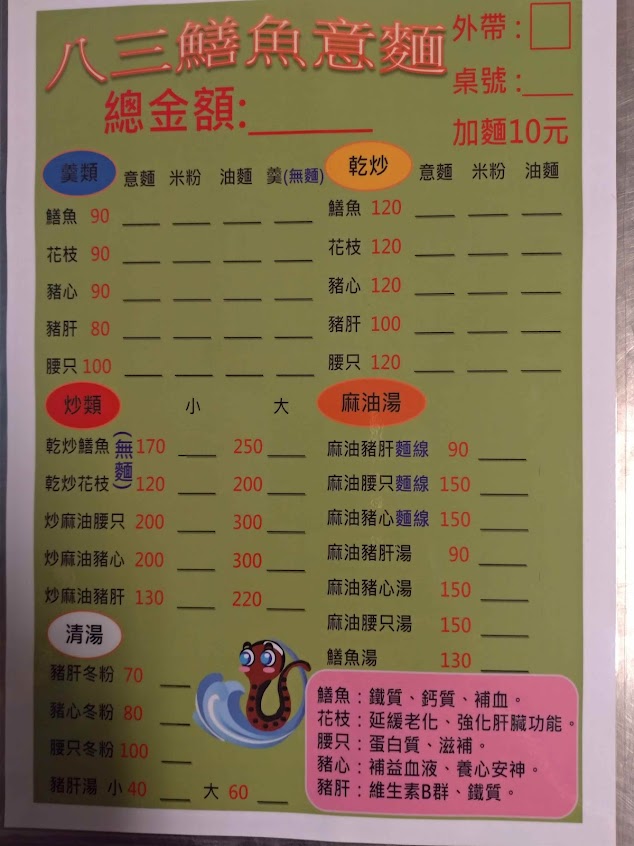 八三鱔魚意麵
外帶：
總金額:
桌號：
加麵10元
羹類 意麵 米粉 油麵 羹(無麵)
鱔魚 90
花枝 90
豬心 90
豬肝 80
腰只 100
乾炒 意麵 米粉 油麵
鱔魚 120
花枝 120
豬心 120
豬肝 100
腰只 120
炒類 小 大
乾炒鱔魚(無麵) 170 250
乾炒花枝 120 200
炒麻油腰只 200 300
炒麻油豬心 200 300
炒麻油豬肝 130 220
麻油湯
麻油豬肝麵線 90
麻油腰只麵線 150
麻油豬心麵線 150
麻油豬肝湯 90
麻油豬心湯 150
麻油腰只湯 150
鱔魚湯 130
清湯
豬肝冬粉 70
豬心冬粉 80
腰只冬粉 100
豬肝湯 小 40 大 60
鱔魚：鐵質、鈣質、補血。
花枝：延緩老化、強化肝臟功能。
腰只：蛋白質、滋補。
豬心：補益血液、養心安神。
豬肝：維生素B群、鐵質。